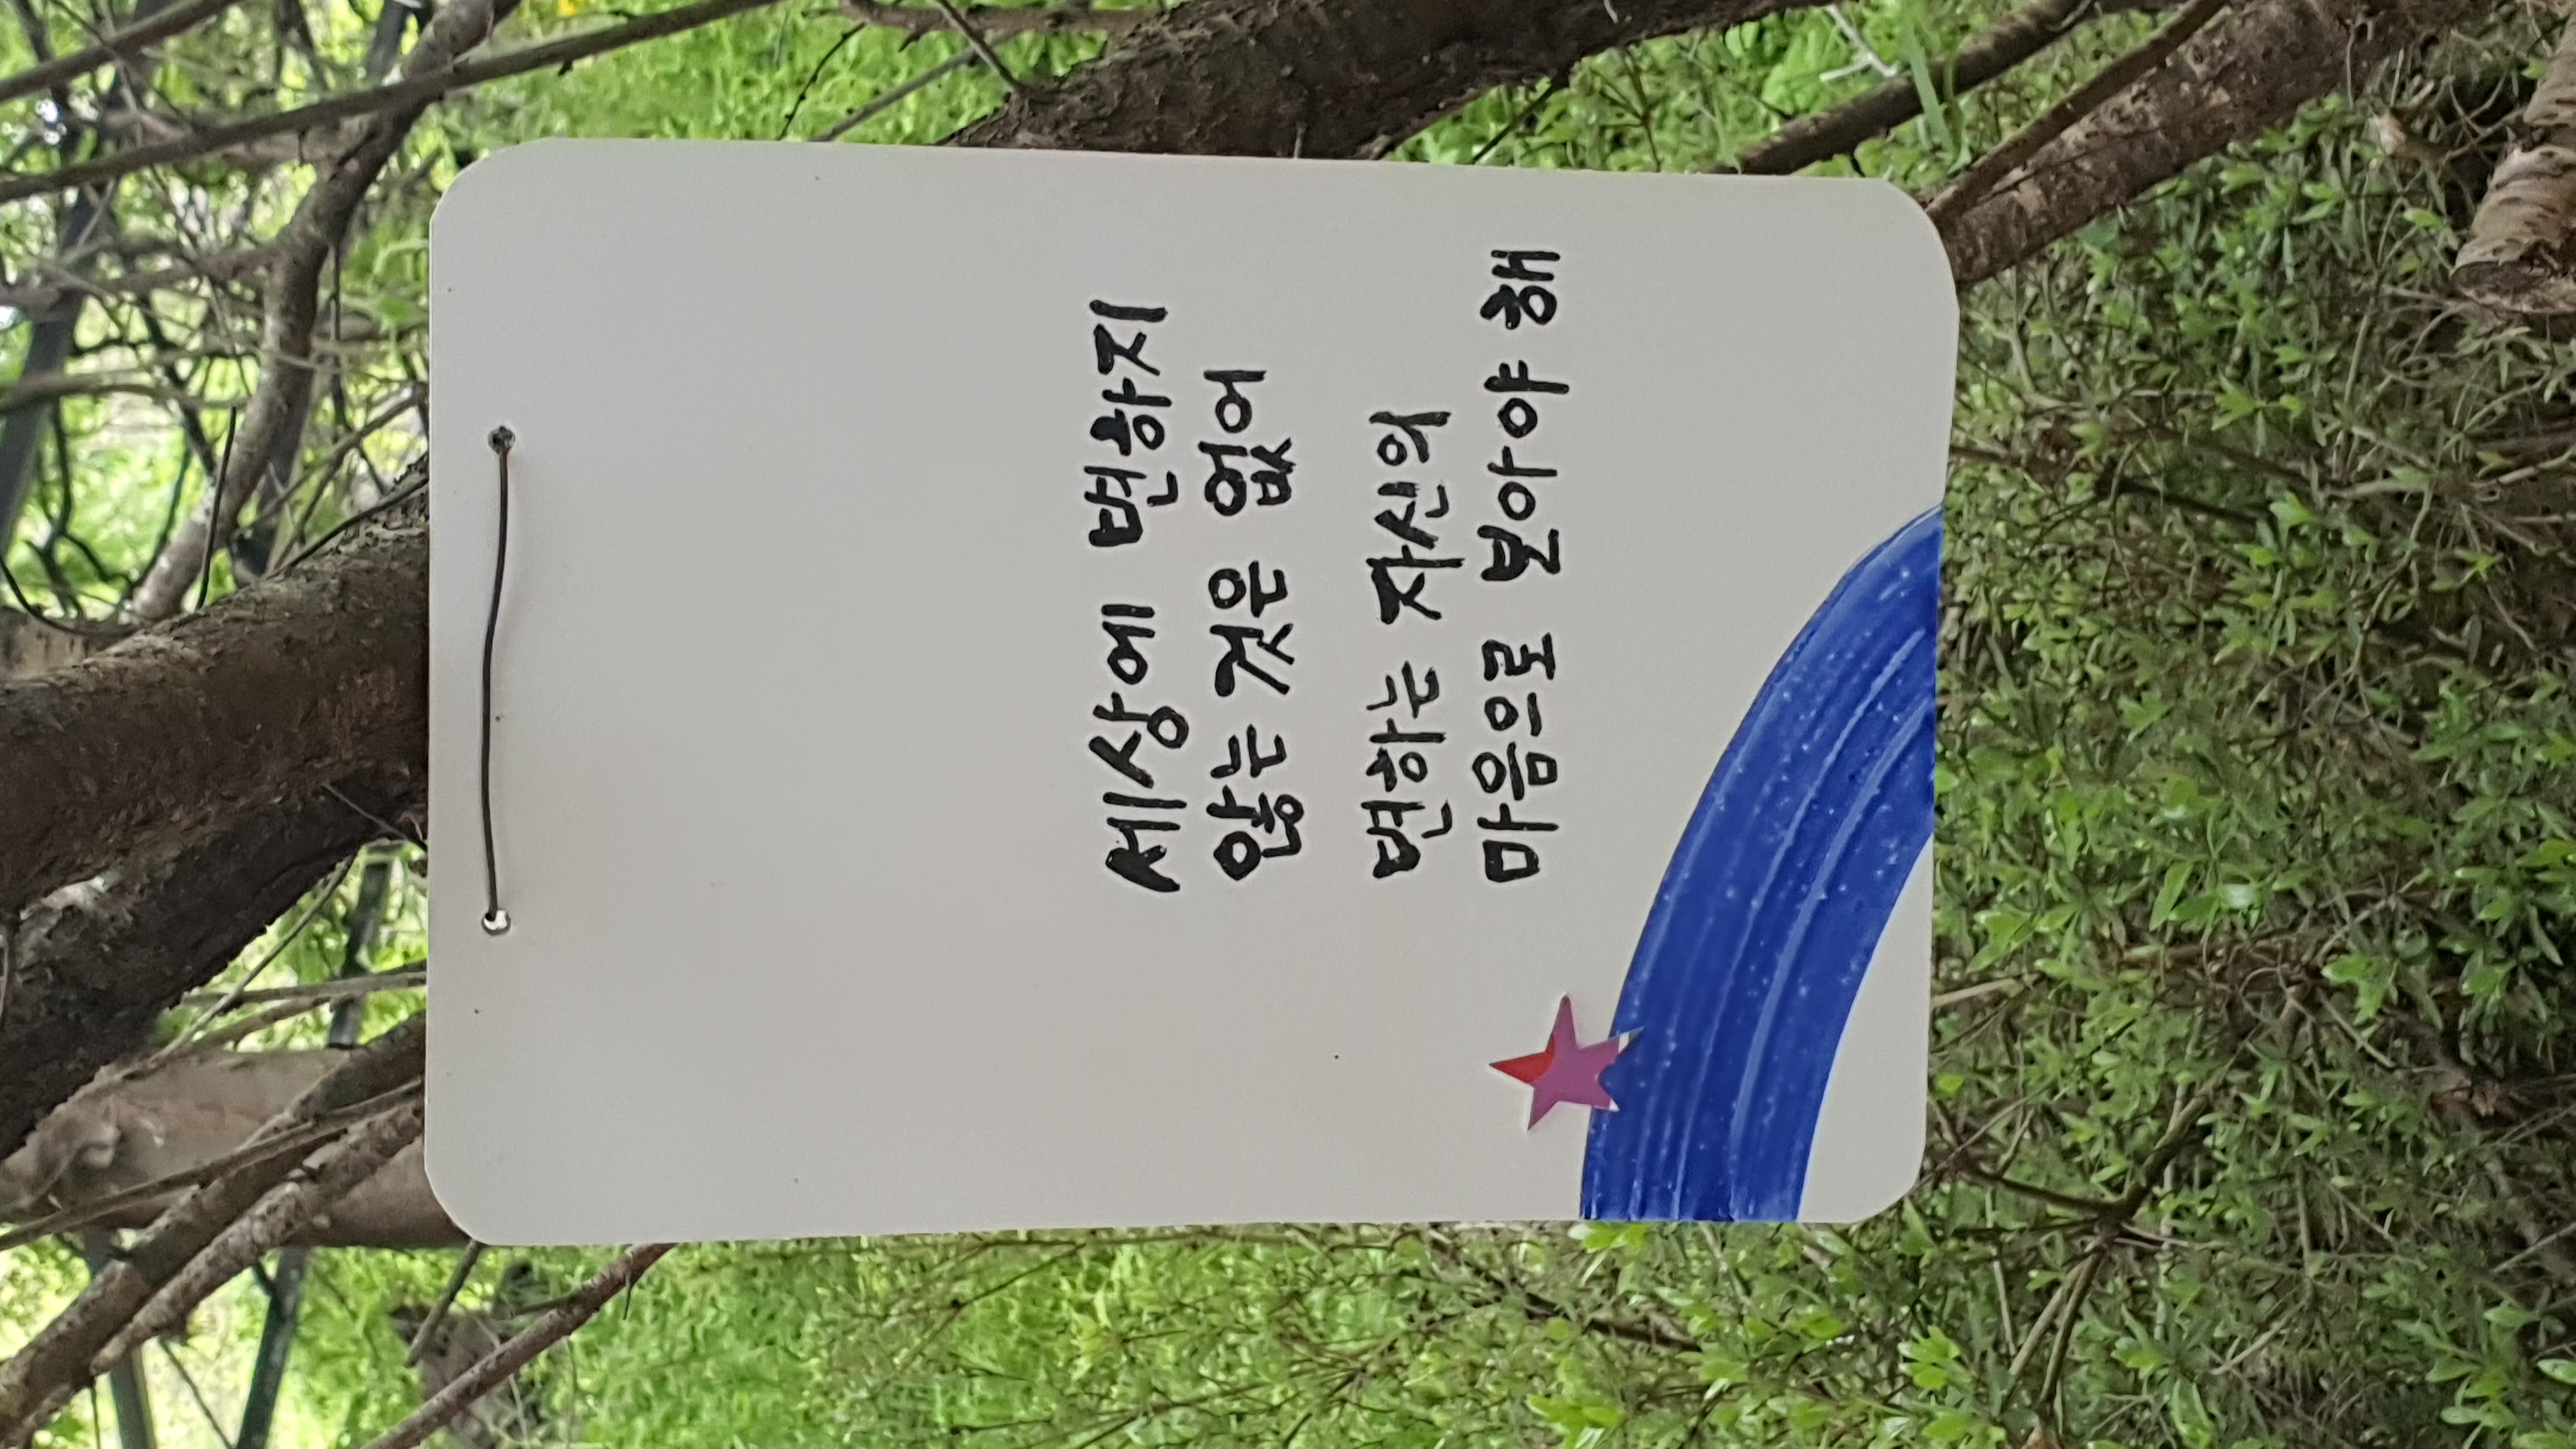 세상에 변하지
않는 것은 없어
변하는 자신의
마음으로 보아야 해